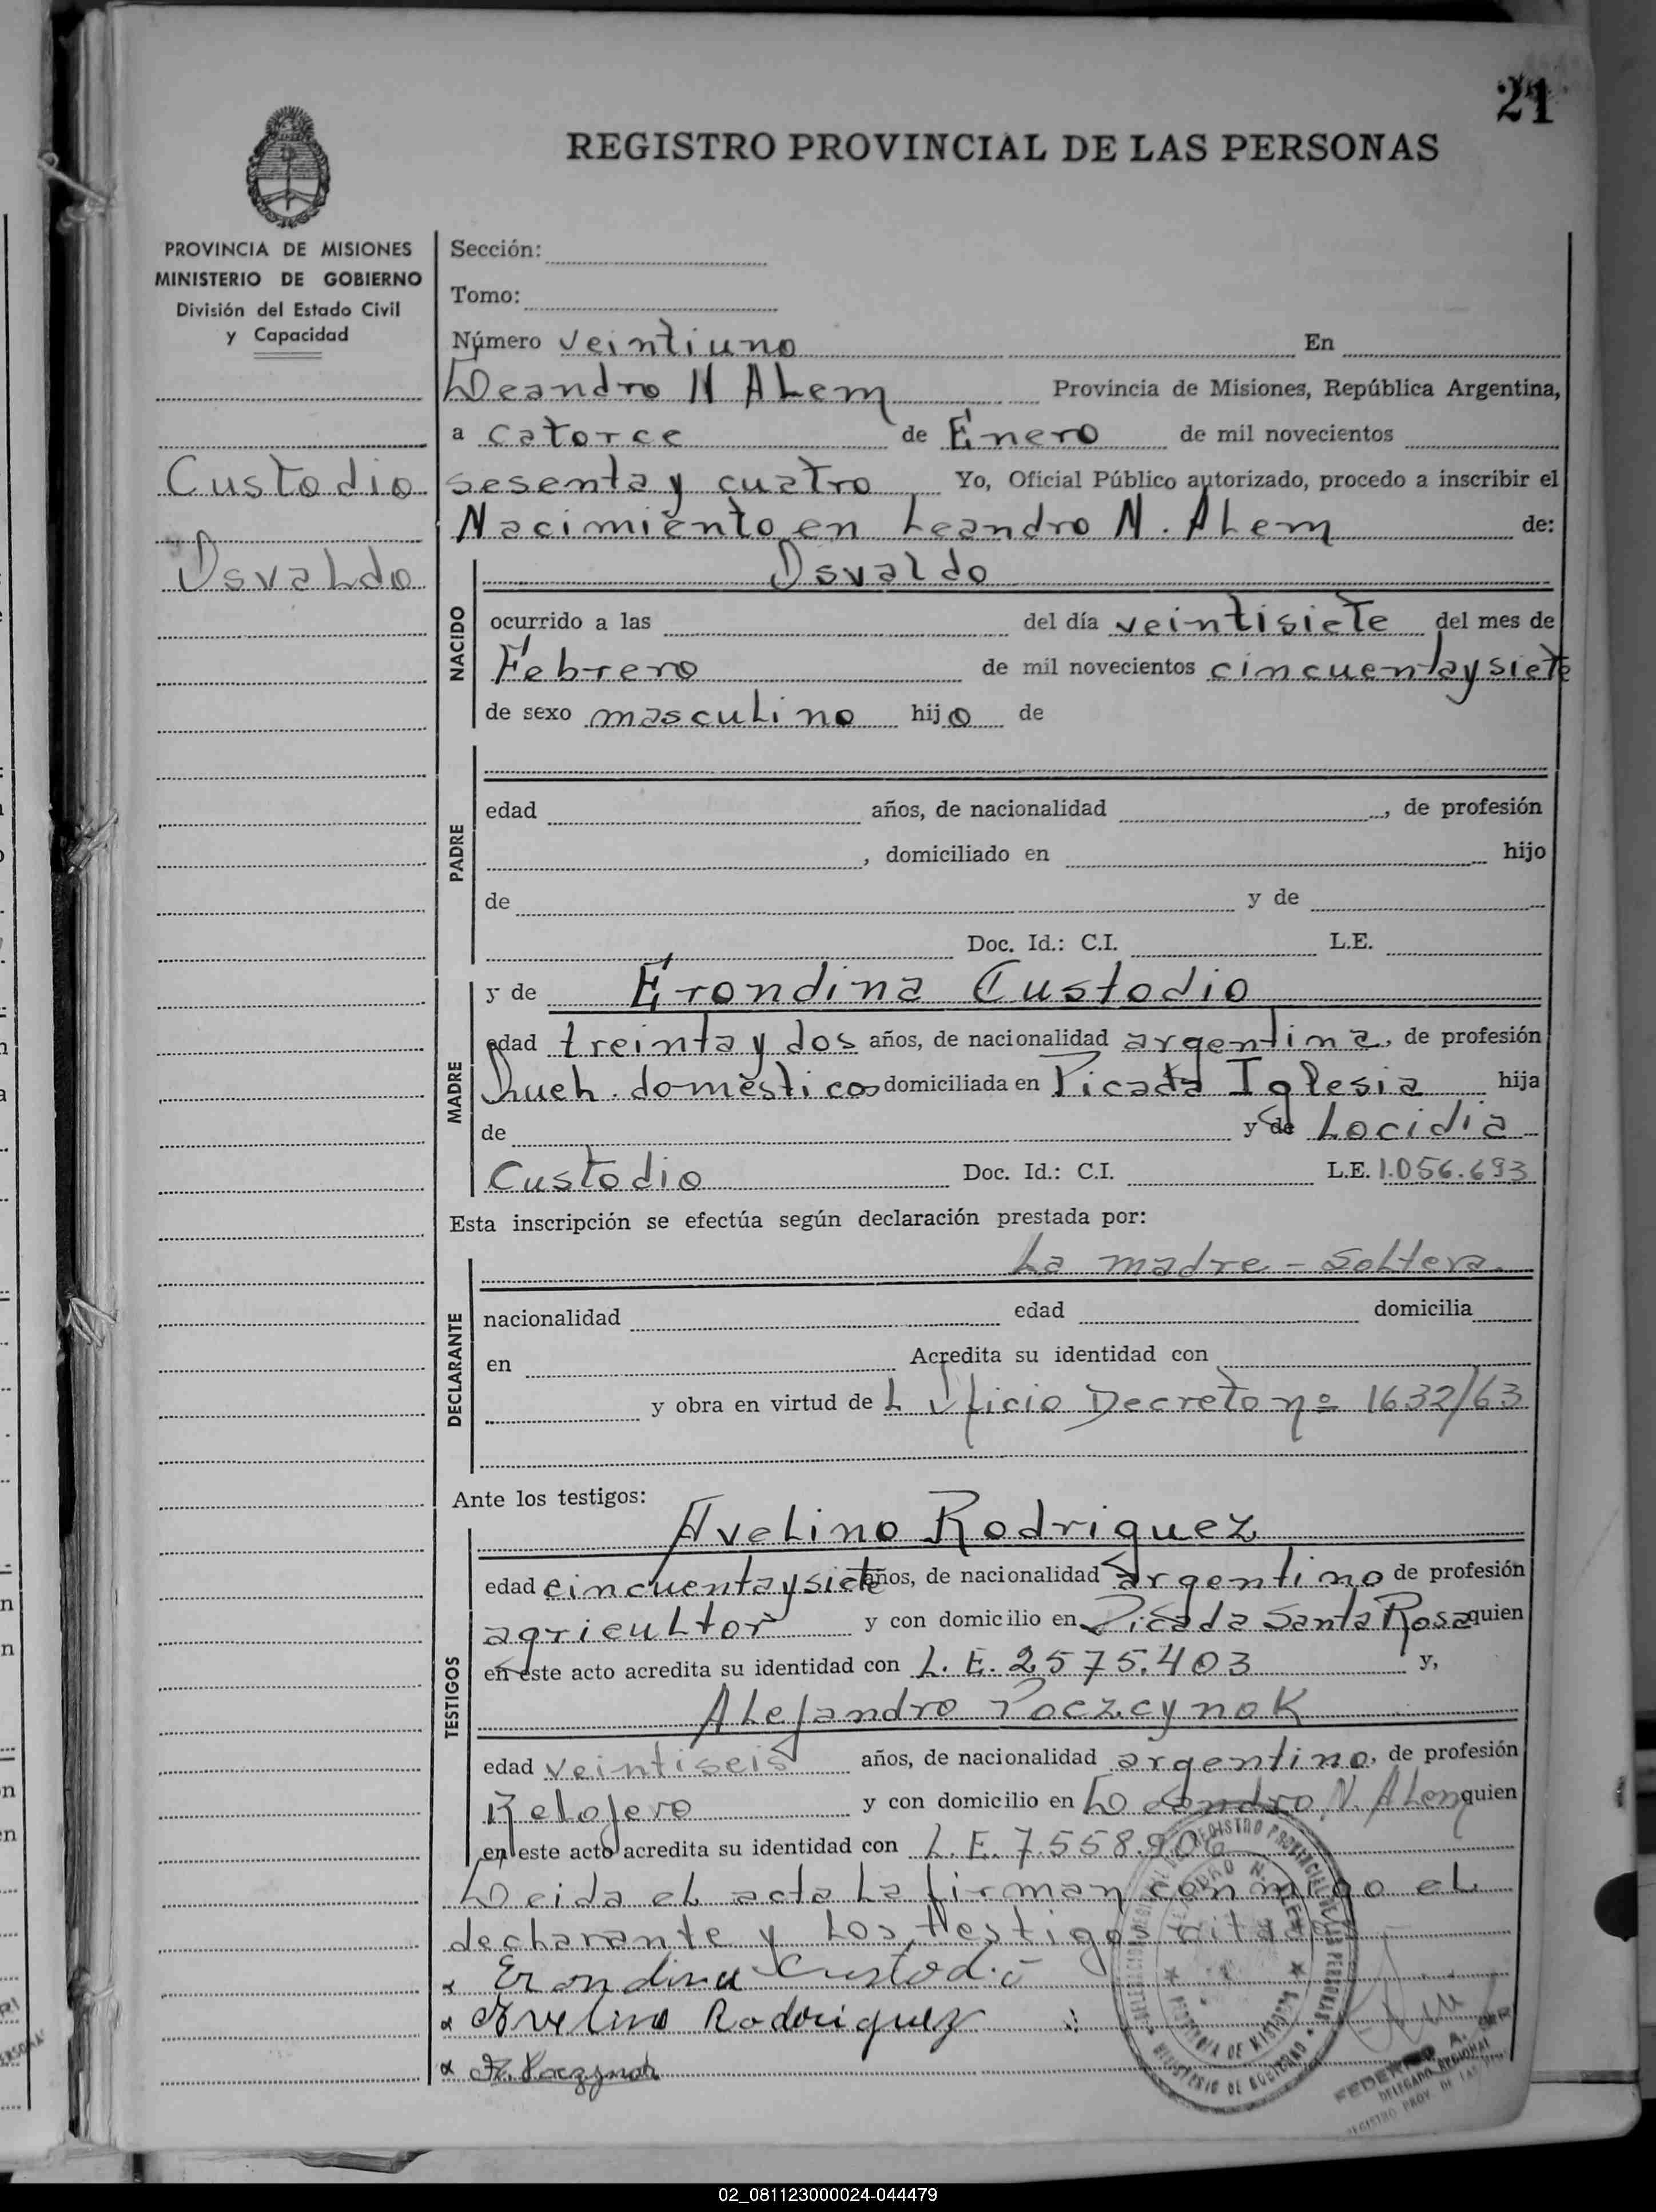 21
REGISTRO PROVINCIAL DE LAS PERSONAS
PROVINCIA DE MISIONES
MINISTERIO DE GOBIERNO
División del Estado Civil
y Capacidad
Custodio
Osvaldo
Sección:
Tomo:
Número veintiuno En
Leandro N Alem Provincia de Misiones, República Argentina,
a catorce de Enero de mil novecientos
sesenta y cuatro Yo, Oficial Público autorizado, procedo a inscribir el
Nacimiento en Leandro N. Alem de:
NACIDO
Osvaldo
ocurrido a las del día veintisiete del mes de
Febrero de mil novecientos cincuentaysiete
de sexo masculino hijo de
PADRE
edad años, de nacionalidad , de profesión
, domiciliado en hijo
de y de
Doc. Id.: C.I. L.E.
MADRE
y de Erondina Custodio
edad treinta y dos años, de nacionalidad argentina, de profesión
queh. domèsticos domiciliada en Picada Iglesia hija
de y de Locidia
Custodio Doc. Id.: C.I. L.E. 1.056.693
Esta inscripción se efectúa según declaración prestada por:
DECLARANTE
La madre - soltera.
nacionalidad edad domicilia
en Acredita su identidad con
y obra en virtud de L Oficio Decreto nº 1632/63
Ante los testigos:
TESTIGOS
Avelino Rodriguez
edad cincuentaysiete años, de nacionalidad argentino de profesión
agricultor y con domicilio en Picada Santa Rosa quien
en este acto acredita su identidad con L. E. 2575.403 y,
Alejandro Poczcynok
edad veintiseis años, de nacionalidad argentino, de profesión
Relojero y con domicilio en Leandro N. Alem quien
en este acto acredita su identidad con L.E. 7.558.906
Leida el acta la firman conmigo el
declarante y los testigos citados
x Erondina Custodio
x Avelino Rodriguez
x
REGISTRO PROVINCIAL DE LAS PERSONAS
PROVINCIA DE MISIONES
MINISTERIO DE GOBIERNO
FEDERICO A.
DELEGADO REGIONAL
REGISTRO PROV. DE LAS
02_081123000024-044479